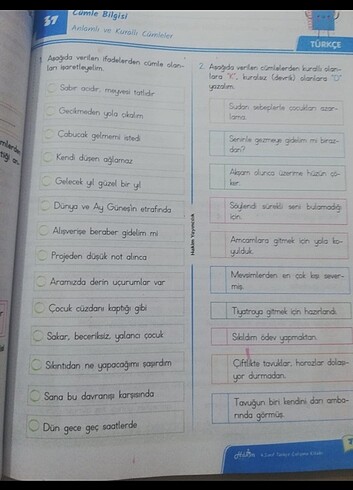 37
Cümle Bilgisi
Anlamlı ve Kurallı Cümleler
TÜRKÇE
1. Aşağıda verilen ifadelerden cümle olan-
ları işaretleyelim.
Sabır acıdır, meyvesi tatlıdır
Gecikmeden yola çıkalım
Çabucak gelmemi istedi
Kendi düşen ağlamaz
Gelecek yıl güzel bir yıl
Dünya ve Ay Güneş'in etrafında
Alışverişe beraber gidelim mi
Projeden düşük not alınca
Aramızda derin uçurumlar var
Çocuk cüzdanı kaptığı gibi
Sakar, beceriksiz, yalancı çocuk
Sıkıntıdan ne yapacağımı şaşırdım
Sana bu davranışı karşısında
Dün gece geç saatlerde
Hakim Yayıncılık
2. Aşağıda verilen cümlelerden kurallı olan-
lara "K", kuralsız (devrik) olanlara "D"
yazalım.
Sudan sebeplerle çocukları azar-
lama.
Seninle gezmeye gidelim mi biraz-
dan?
Akşam olunca üzerime hüzün çö-
ker.
Söylendi sürekli seni bulamadığı
için.
Amcamlara gitmek için yola ko-
yulduk.
Mevsimlerden en çok kışı sever-
miş.
Tiyatroya gitmek için hazırlandı.
Sıkıldım ödev yapmaktan.
Çiftlikte tavuklar, horozlar dolaşı-
yor durmadan.
Tavuğun biri kendini darı amba-
rında görmüş.